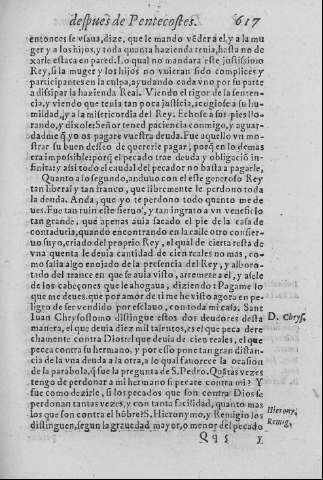 despues de Pentecostes. 617
entonces se vsaua, dize, que le mando vẽder a el, y a la mu
ger y a los hijos, y toda quanta hazienda tenia, hasta no de
xarle estaca en pared. Lo qual no mandara este justissimo
Rey, si la muger y los hijos no vuieran sido complices y
participantes en la culpa, ayudando cada vno por su parte
a dissipar la hazienda Real. Viendo el rigor de la senten-
cia, y viendo que tenia tan poca justicia, acogiose a su hu-
mildad, y a la misericordia del Rey. Echose a sus pies llo-
rando, y dixole: Señor tened paciencia conmigo, y aguar-
dadme q̃ yo os pagare vuestra deuda. Fue aquello vn mo-
strar su buen desseo de quererle pagar, porq̃ en lo demas
era impossible: porq̃ el pecado trae deuda y obligació in-
finita: y assi todo el caudal del pecador no basta a pagarle.
Quanto a lo segundo, anduuo con el este generoso Rey
tan liberal y tan franco, que libremente le perdono toda
la deuda. Anda, que yo te perdono todo quanto me de-
ues. Fue tan ruin este sieruo, y tan ingrato a vn veneficio
tan grande, que apenas auia sacado el pie de la casa de
contaduria, quando encontrando en la calle otro consier-
uo suyo, criado del proprio Rey, el qual de cierta resta de
vna quenta le deuia cantidad de cien reales no mas, co-
mo salia algo enojado de la presencia del Rey, y alboro-
tado del trance en que se auia visto, arremete a el, y asele
de los cabeçones que le ahogaua, diziendo: Pagame lo
que me deues, que por amor de ti me he visto agora en pe-
ligro de ser vendido por esclauo, con toda mi casa. Sant
Iuan Chrysostomo distingue estos dos deudores desta
D. Chrys.
manera, el que deuia diez mil talentos, es el que peca dere
chamente contra Dios: el que deuia de cien reales, el que
pecca contra su hermano, y por esso pone tan gran distan-
cia de la vna deuda a la otra, a lo qual fauorece la ocasion
de la parabola, q̃ fue la pregunta de S. Pedro. Quãtas vezes
tengo de perdonar a mi hermano si pecare contra mi? Y
fue como dezirle, si los pecados que son contra Dios se
perdonan tantas vezes, y con tanta facilidad, quanto mas
los que son contra el hõbre? S. Hieronymo, y Remigio los
Hierony.
distinguen, segun la grauedad mayor, o menor del pecado
Remig.
Qq 5 I.